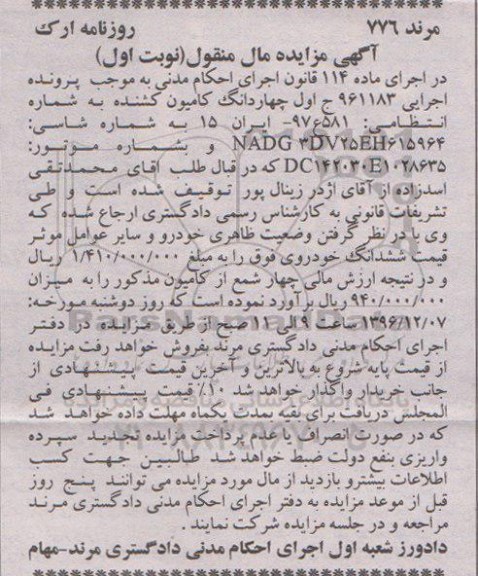 مرند ۷۷۶ روزنامه ارک
آگهی مزایده مال منقول(نوبت اول)
در اجرای ماده ۱۱۴ قانون اجرای احکام مدنی به موجب پرونده
اجرایی ۹۶۱۱۸۳ ج اول چهاردانگ کامیون کشنده به شماره
انتظامی: ۵۸۱ع۹۷- ایران ۱۵ به شماره شاسی:
NADG۳DV۲۵EH۶۱۵۹۶۴ و بشماره موتور:
DC۱۴۲۰۳۰E۱۰۲۸۶۳۵ که در قبال طلب آقای محمدتقی
اسدزاده از آقای اژدر زینال پور توقیف شده است و طی
تشریفات قانونی به کارشناس رسمی دادگستری ارجاع شده که
وی با در نظر گرفتن وضعیت ظاهری خودرو و سایر عوامل موثر
قیمت ششدانگ خودروی فوق را به مبلغ ۱/۴۱۰/۰۰۰/۰۰۰ ریال
و در نتیجه ارزش مالی چهار شمع از کامیون مذکور را به میزان
۹۴۰/۰۰۰/۰۰۰ ریال برآورد نموده است که روز دوشنبه مورخه:
۱۳۹۶/۱۲/۰۷ ساعت ۹ الی ۱۱ صبح از طریق مزایده در دفتر
اجرای احکام مدنی دادگستری مرند بفروش خواهد رفت مزایده
از قیمت پایه شروع به بالاترین و آخرین قیمت پیشنهادی از
جانب خریدار واگذار خواهد شد ۱۰٪ قیمت پیشنهادی فی
المجلس دریافت برای بقیه بمدت یکماه مهلت داده خواهد شد
که در صورت انصراف یا عدم پرداخت مزایده تجدید سپرده
واریزی بنفع دولت ضبط خواهد شد طالبین جهت کسب
اطلاعات بیشترو بازدید از مال مورد مزایده می توانند پنج روز
قبل از موعد مزایده به دفتر اجرای احکام مدنی دادگستری مرند
مراجعه و در جلسه مزایده شرکت نمایند .
دادورز شعبه اول اجرای احکام مدنی دادگستری مرند-مهام